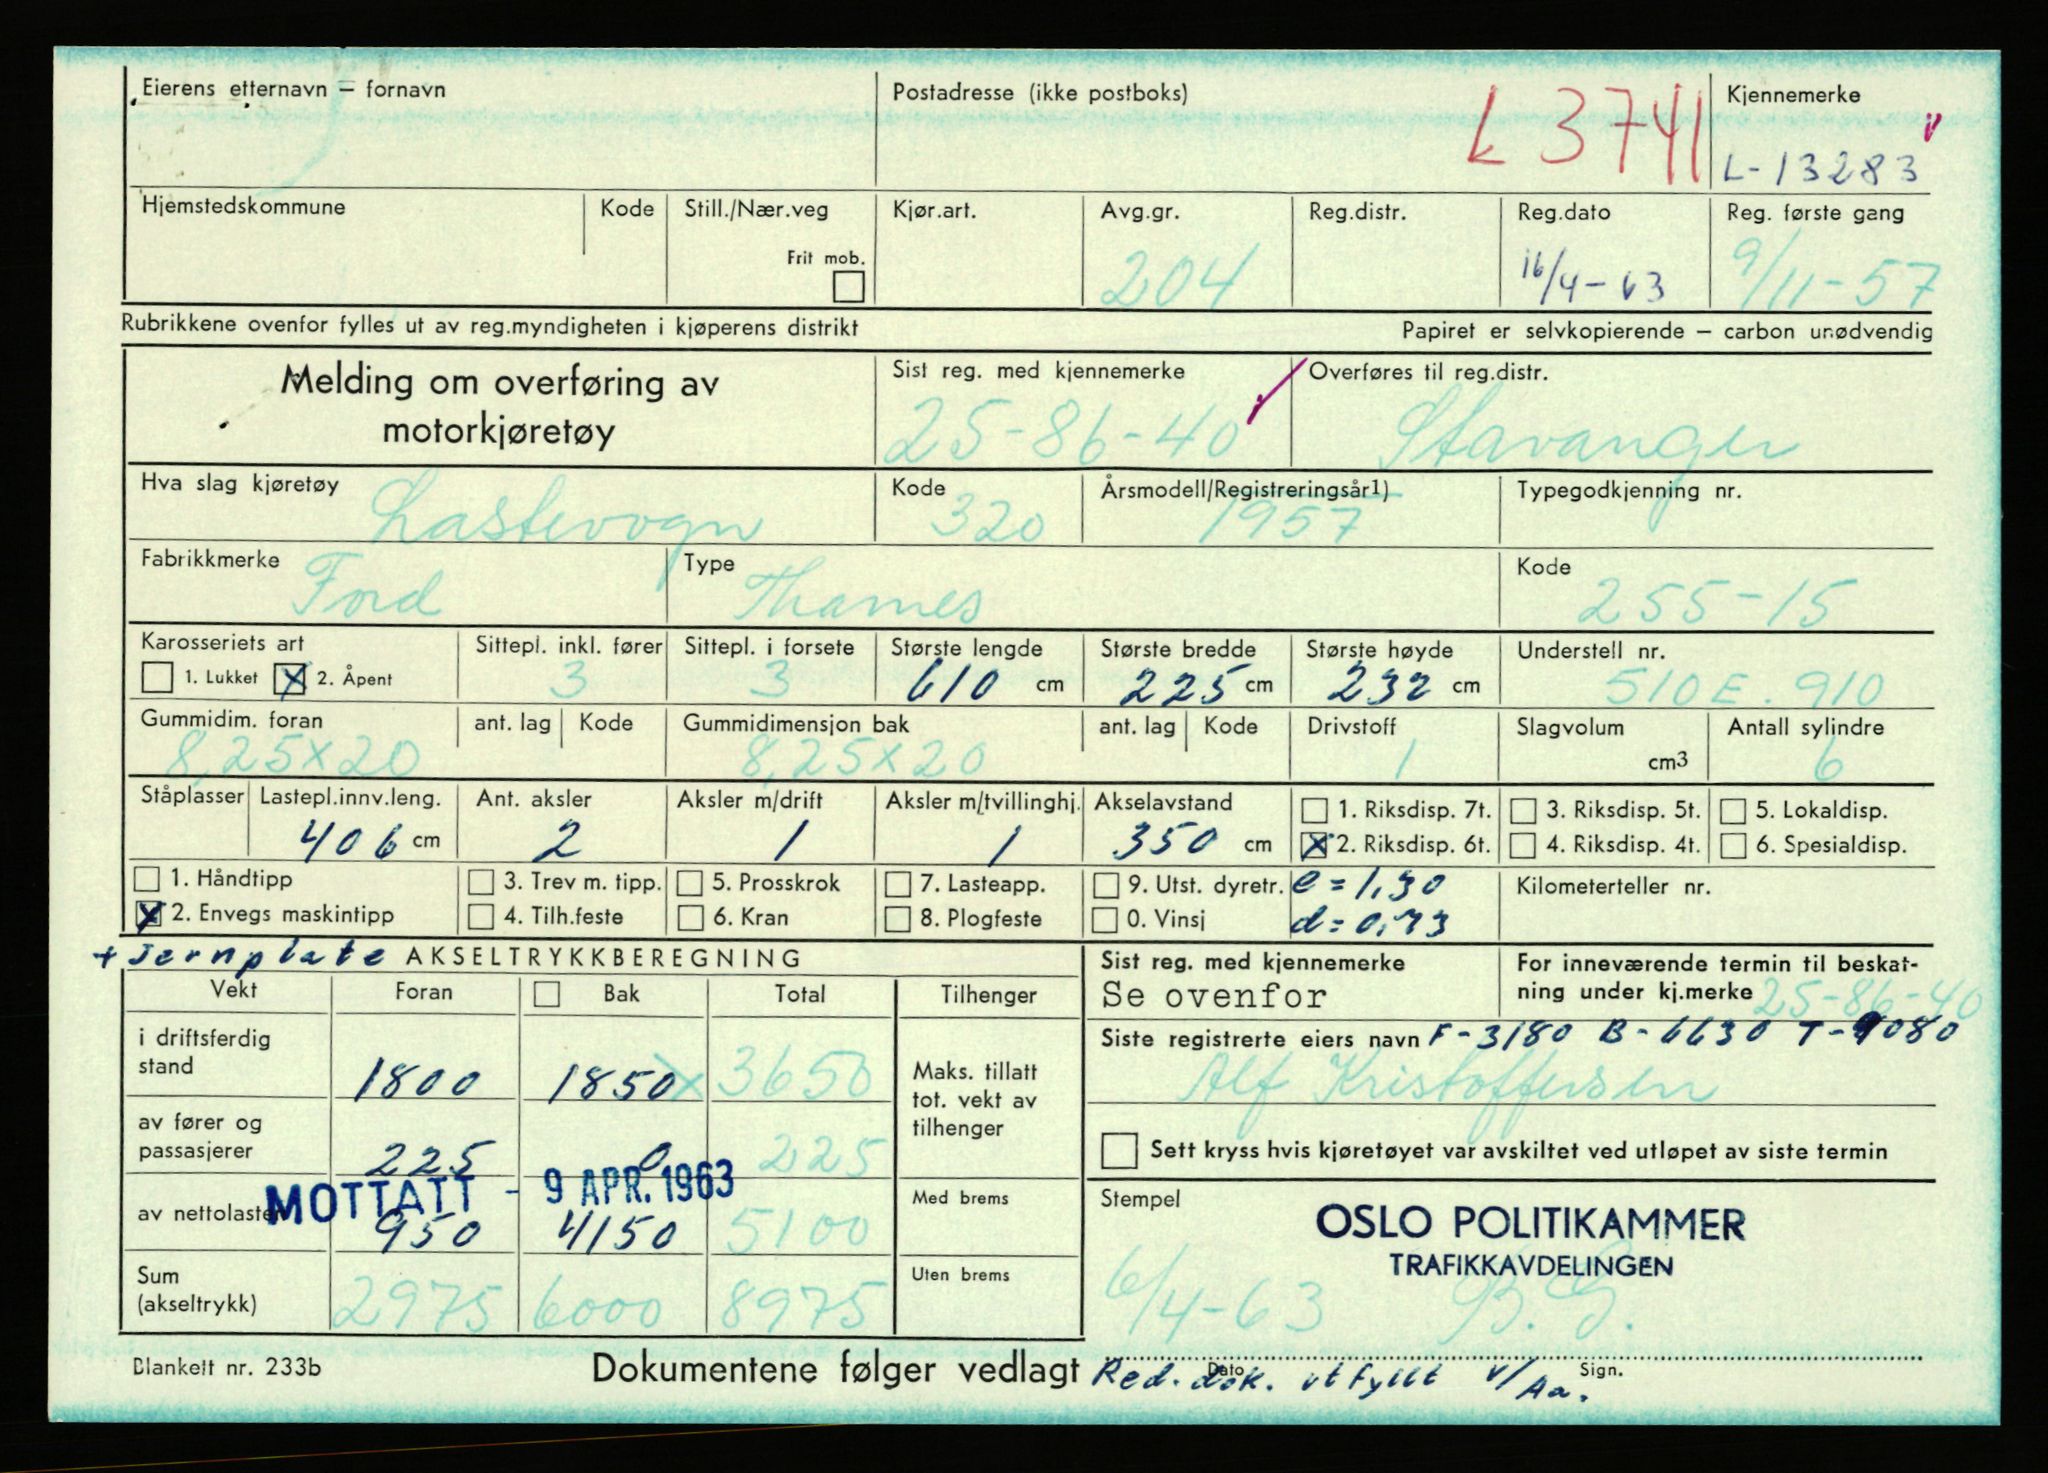 Eierens etternavn – fornavn
Postadresse (ikke postboks)
L 3741
Kjennemerke
L-13283
Hjemstedskommune
Kode
Still./Nær.veg
Frit mob.
Kjør.art.
Avg.gr.
204
Reg.distr.
Reg.dato
16/4-63
Reg. første gang
9/11-57
Rubrikkene ovenfor fylles ut av reg.myndigheten i kjøperens distrikt
Papiret er selvkopierende – carbon unødvendig
Melding om overføring av
motorkjøretøy
Sist reg. med kjennemerke
25-86-40
Overføres til reg.distr.
Stavanger
Hva slag kjøretøy
Lastevogn
Kode
320
Årsmodell/Registreringsår1)
1957
Typegodkjenning nr.
Fabrikkmerke
Ford
Type
Thames
Kode
255-15
Karosseriets art
1. Lukket
X 2. Åpent
Sittepl. inkl. fører
3
Sittepl. i forsete
3
Største lengde
610 cm
Største bredde
225 cm
Største høyde
232 cm
Understell nr.
510E.910
Gummidim. foran
8,25x20
ant. lag
Kode
Gummidimensjon bak
8,25x20
ant. lag
Kode
Drivstoff
1
Slagvolum
cm3
Antall sylindre
6
Ståplasser
Lastepl.innv.leng.
406 cm
Ant. aksler
2
Aksler m/drift
1
Aksler m/tvillinghj.
1
Akselavstand
350 cm
1. Riksdisp. 7t.
X 2. Riksdisp. 6t.
3. Riksdisp. 5t.
4. Riksdisp. 4t.
5. Lokaldisp.
6. Spesialdisp.
1. Håndtipp
X 2. Envegs maskintipp
3. Trev m. tipp.
4. Tilh.feste
5. Prosskrok
6. Kran
7. Lasteapp.
8. Plogfeste
9. Utst. dyretr.
0. Vinsj
e = 1,30
d = 0,73
Kilometerteller nr.
+ Jernplate AKSELTRYKKBEREGNING
Vekt
Foran
Bak
Total
Tilhenger
i driftsferdig
stand
1800
1850 x
3650
av fører og
passasjerer
225
0
225
MOTTATT - 9 APR. 1963
av nettolasten
950
4150
5100
Sum
(akseltrykk)
2975
6000
8975
Maks. tillatt
tot. vekt av
tilhenger
Med brems
Uten brems
Sist reg. med kjennemerke
Se ovenfor
For inneværende termin til beskat-
ning under kj.merke 25-86-40
Siste registrerte eiers navn F-3180 B-6630 T-9080
Alf Kristoffersen
Sett kryss hvis kjøretøyet var avskiltet ved utløpet av siste termin
Stempel
OSLO POLITIKAMMER
TRAFIKKAVDELINGEN
6/4-63
B. G.
Dato
Sign.
Blankett nr. 233b
Dokumentene følger vedlagt
Red. dok. utfyllt v/Aa.